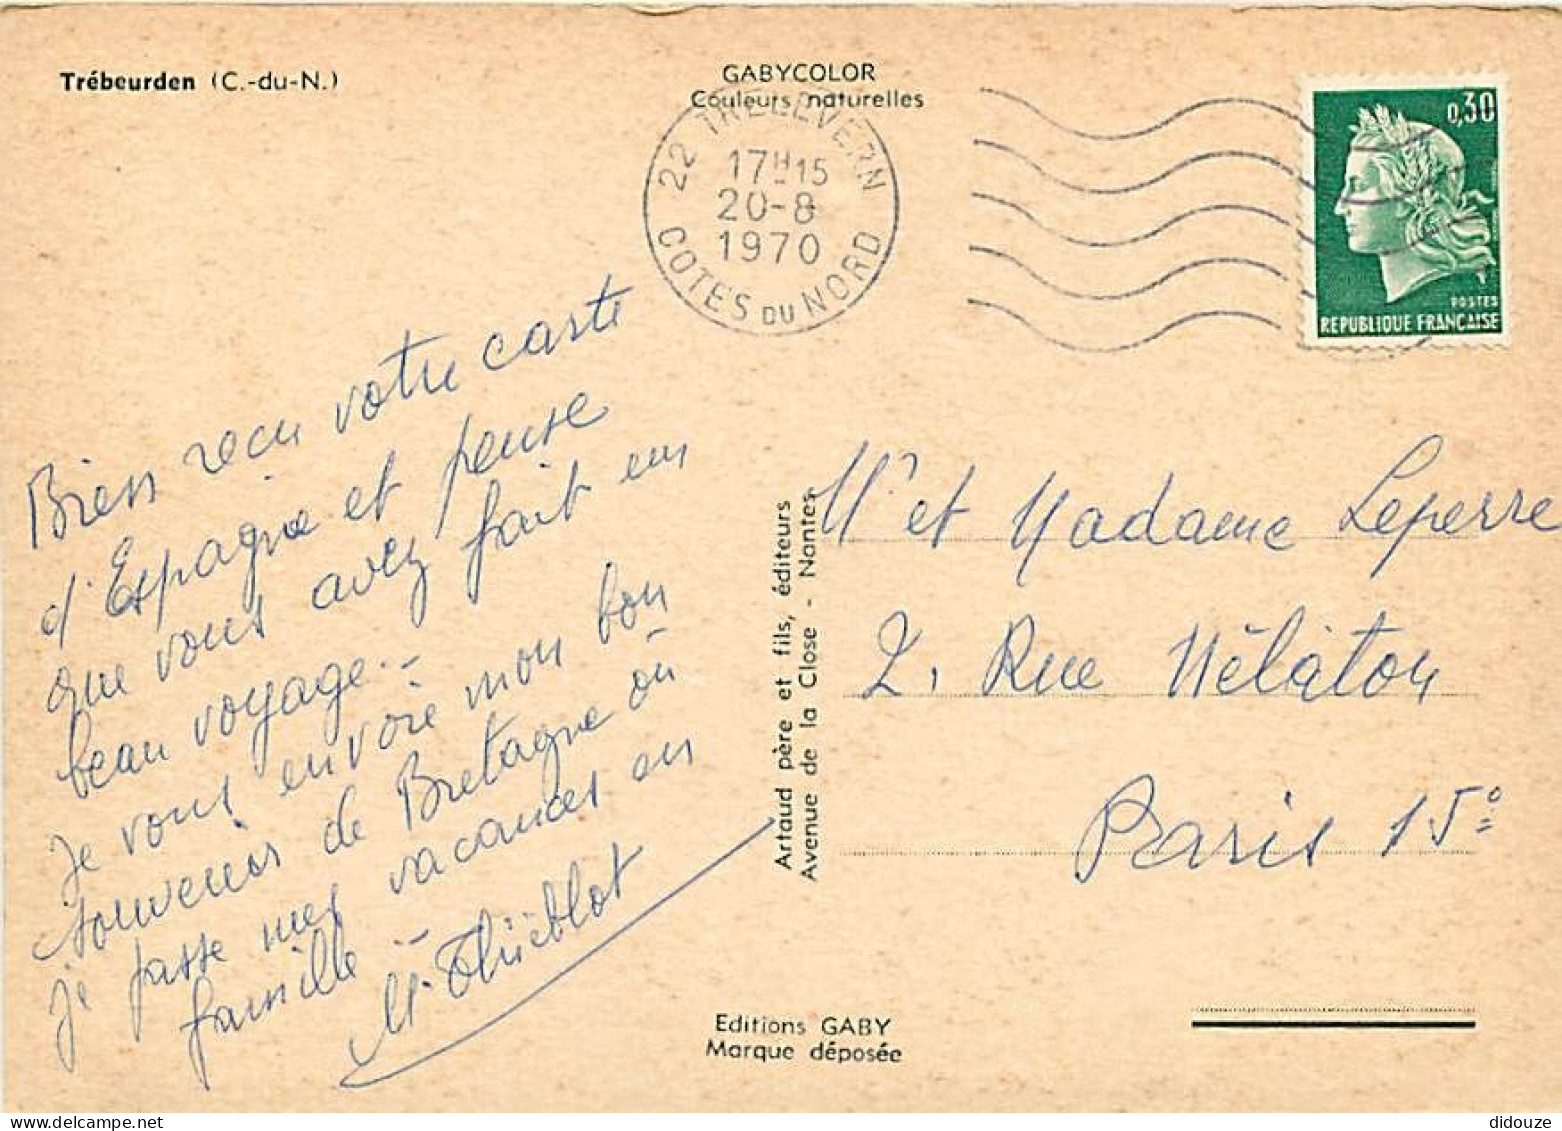 Trébeurden (C.-du-N.)
GABYCOLOR
Couleurs naturelles
22 TRELEVERN
17H15
20-8
1970
COTES DU NORD
0,30
POSTES
REPUBLIQUE FRANÇAISE
Bien recu votre carte
d'Espagne et pense
que vous avez fait un
beau voyage.-
Je vous envoie mon bon
souvenir de Bretagne où
je passe mes vacances en
famille -
M. Thiéblot
Artaud père et fils, éditeurs
Avenue de la Close - Nantes
Mr et Madame Leperre
2, Rue Nélaton
Paris 15e
Editions GABY
Marque déposée
delcampe.net
didouze